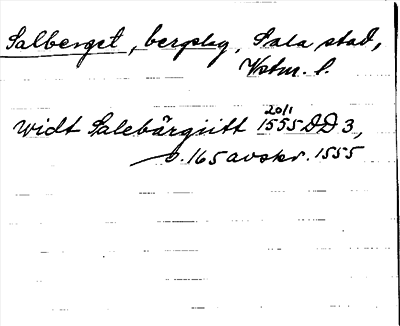 Salberget, bergslag, Sala stad,
Vstm. l.
20/1
widt Salebärgiitt 1555 DD 3,
s. 165 avskr. 1555